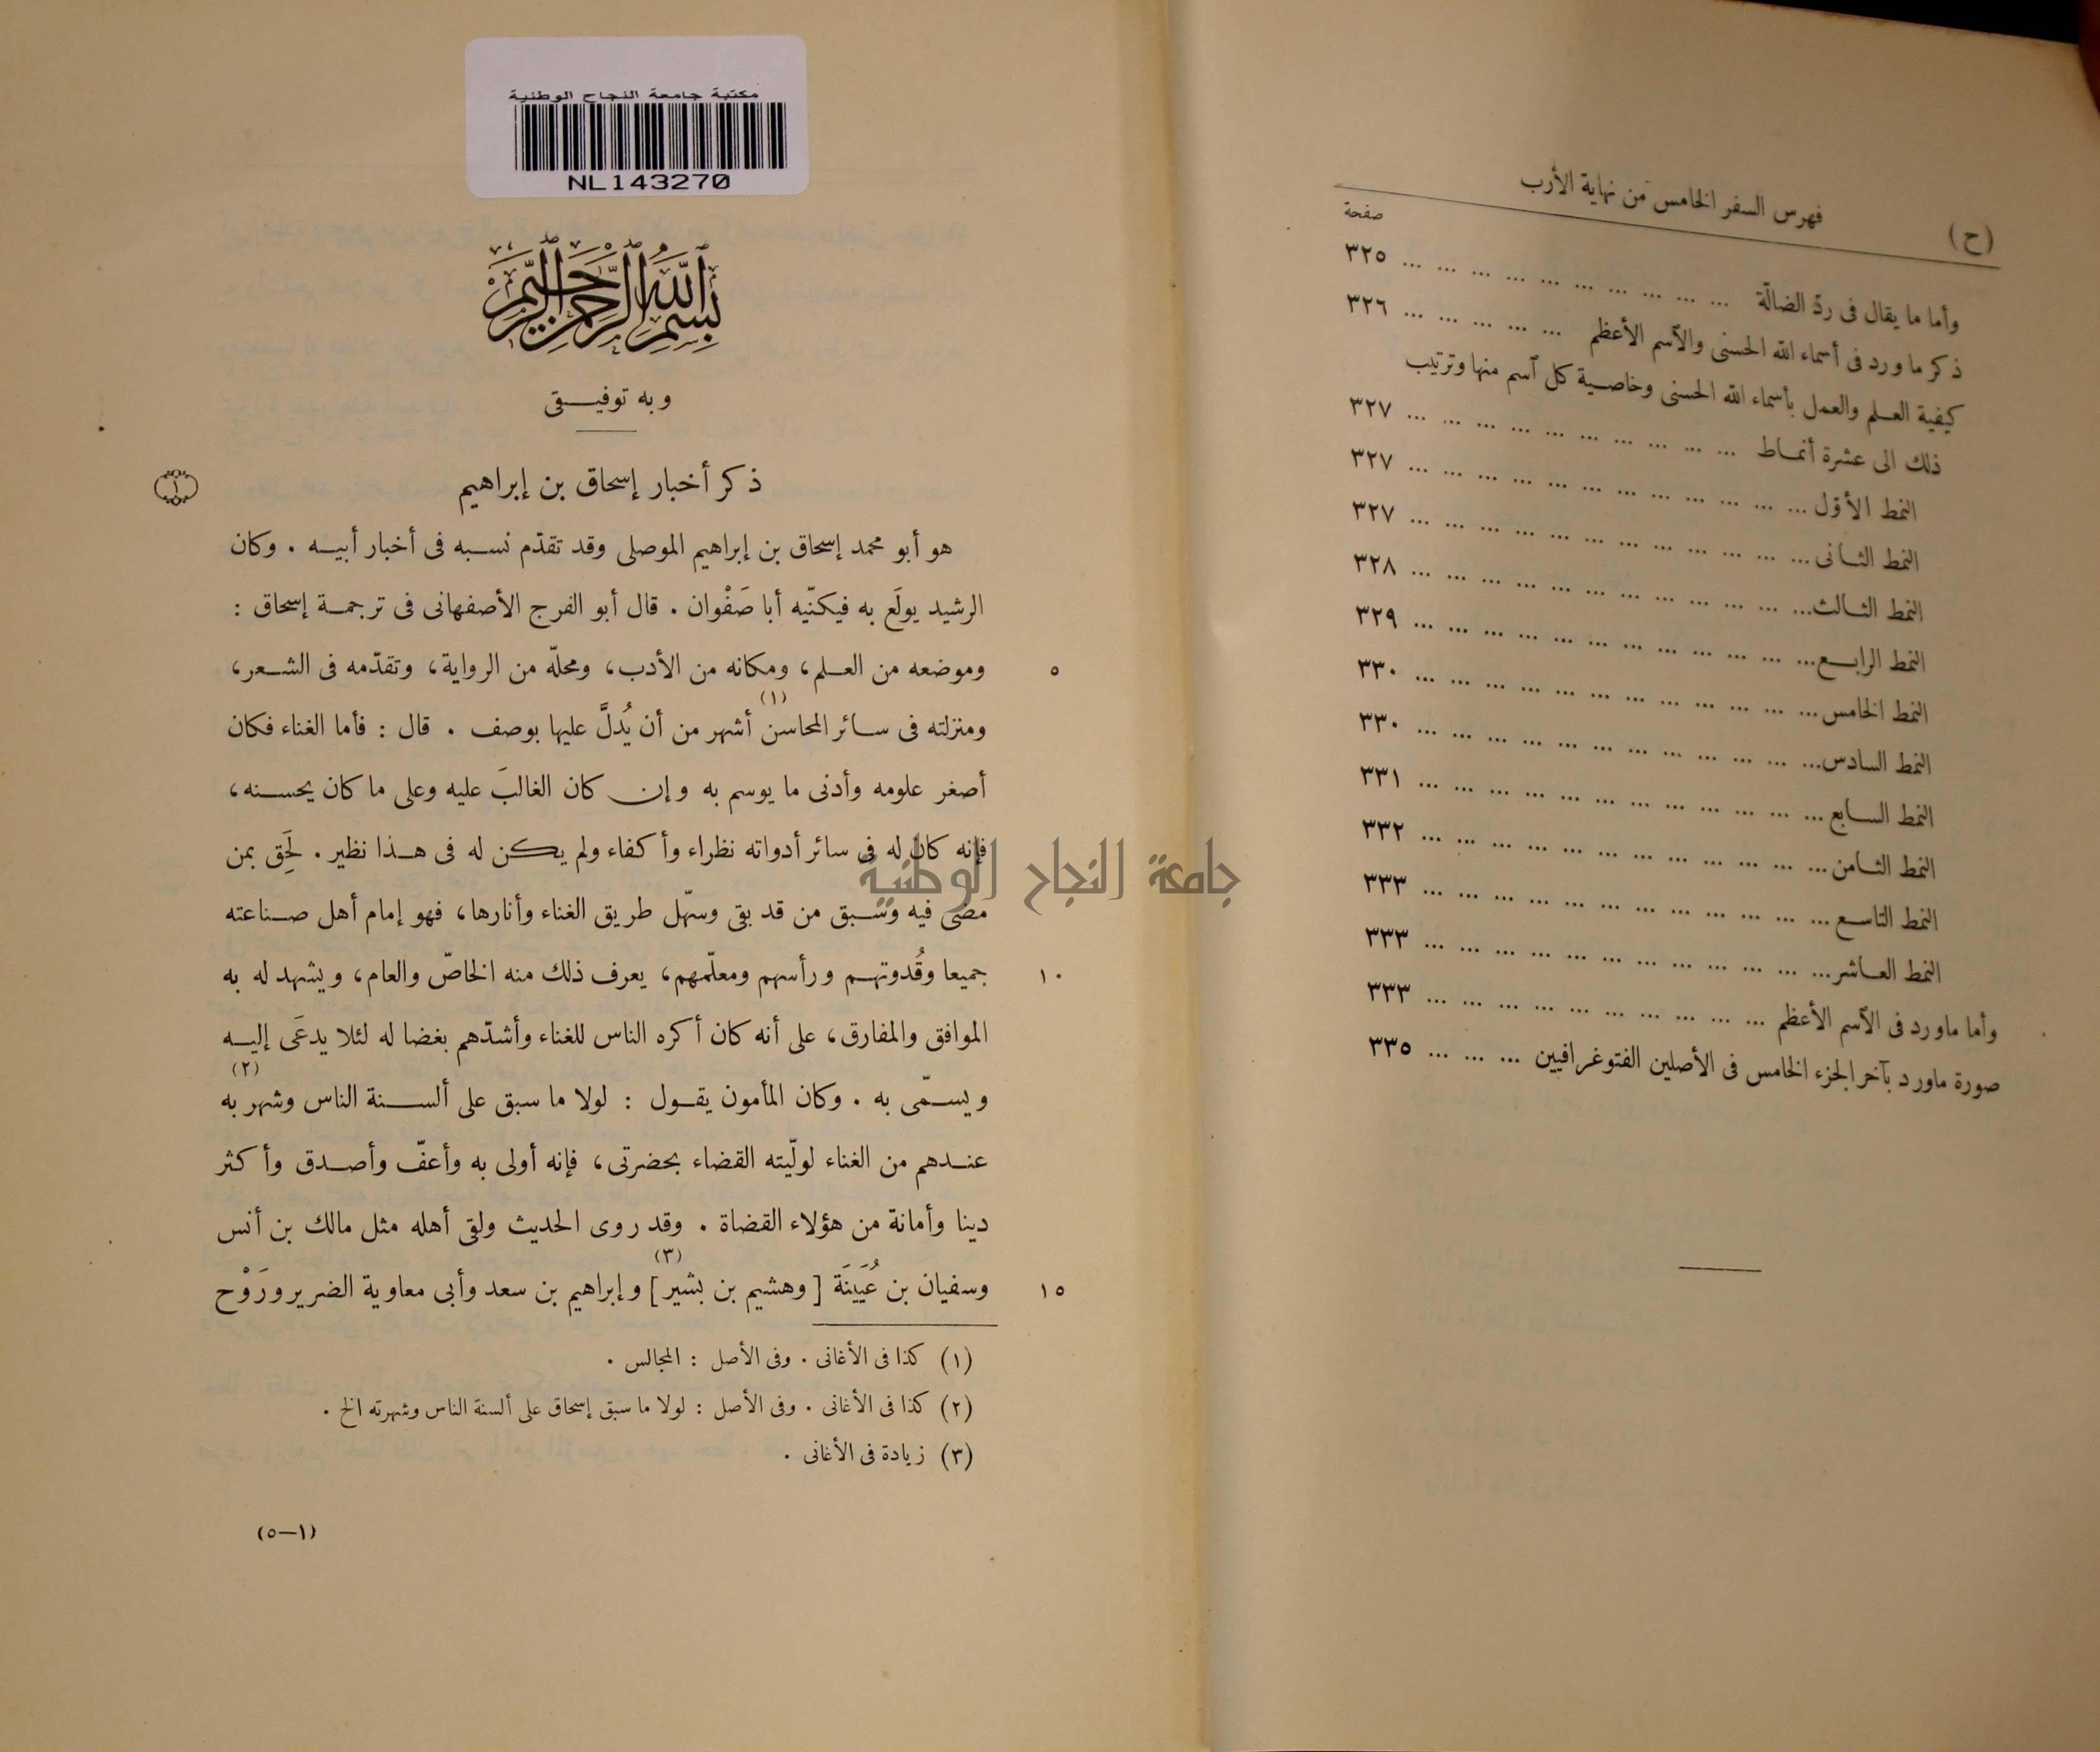 (ح) فهرس السفر الخامس من نهاية الأرب
صفحة
وأما ما يقال فى ردّ الضالّة ... ... ... ... ... ... ... ... ... ... ٣٢٥
ذكر ما ورد فى أسماء الله الحسنى والآسم الأعظم ... ... ... ... ... ٣٢٦
كيفية العلم والعمل بأسماء الله الحسنى وخاصية كل آسم منها وترتيب
ذلك الى عشرة أنماط ... ... ... ... ... ... ... ... ... ... ٣٢٧
النمط الأوّل ... ... ... ... ... ... ... ... ... ... ... ... ٣٢٧
النمط الثانى ... ... ... ... ... ... ... ... ... ... ... ... ٣٢٧
النمط الثالث ... ... ... ... ... ... ... ... ... ... ... ... ٣٢٨
النمط الرابع ... ... ... ... ... ... ... ... ... ... ... ... ٣٢٩
النمط الخامس ... ... ... ... ... ... ... ... ... ... ... ... ٣٣٠
النمط السادس ... ... ... ... ... ... ... ... ... ... ... ... ٣٣٠
النمط السابع ... ... ... ... ... ... ... ... ... ... ... ... ٣٣١
النمط الثامن ... ... ... ... ... ... ... ... ... ... ... ... ٣٣٢
النمط التاسع ... ... ... ... ... ... ... ... ... ... ... ... ٣٣٣
النمط العاشر ... ... ... ... ... ... ... ... ... ... ... ... ٣٣٣
وأما ماورد فى الآسم الأعظم ... ... ... ... ... ... ... ... ... ... ٣٣٣
صورة ماورد بآخر الجزء الخامس فى الأصلين الفتوغرافيين ... ... ... ... ٣٣٥
مكتبة جامعة النجاح الوطنية
NL143270
بسم الله الرحمن الرحيم
وبه توفيقى
ذكر أخبار إسحاق بن إبراهيم
١
هو أبو محمد إسحاق بن إبراهيم الموصلى وقد تقدّم نسبه فى أخبار أبيه . وكان
الرشيد يولَع به فيكنّيه أبا صَفْوان . قال أبو الفرج الأصفهانى فى ترجمة إسحاق :
٥ وموضعه من العلم، ومكانه من الأدب، ومحلّه من الرواية، وتقدّمه فى الشعر،
ومنزلته فى سائر المحاسن (١) أشهر من أن يُدلَّ عليها بوصف . قال : فأما الغناء فكان
أصغر علومه وأدنى ما يوسم به وإن كان الغالبَ عليه وعلى ما كان يحسنه،
فإنه كان له فى سائر أدواته نظراء وأكفاء ولم يكن له فى هذا نظير . لَحِق بمن
مضى فيه وسبق من قد بقى وسهّل طريق الغناء وأنارها، فهو إمام أهل صناعته
١٠ جميعا وقُدوتهم ورأسهم ومعلّمهم، يعرف ذلك منه الخاصّ والعام، ويشهد له به
الموافق والمفارق، على أنه كان أكره الناس للغناء وأشدّهم بغضا له لئلا يدعَى إليه
ويسمّى به . وكان المأمون يقول : لولا ما سبق على ألسنة الناس وشهر به (٢)
عندهم من الغناء لولّيته القضاء بحضرتى، فإنه أولى به وأعفّ وأصدق وأكثر
دينا وأمانة من هؤلاء القضاة . وقد روى الحديث ولقى أهله مثل مالك بن أنس
١٥ وسفيان بن عُيَينَة [وهشيم بن بشير] (٣) وإبراهيم بن سعد وأبى معاوية الضرير ورَوْح
(١) كذا فى الأغانى . وفى الأصل : المجالس .
(٢) كذا فى الأغانى . وفى الأصل : لولا ما سبق إسحاق على ألسنة الناس وشهرته الخ .
(٣) زيادة فى الأغانى .
(١—٥)
جامعة النجاح الوطنية